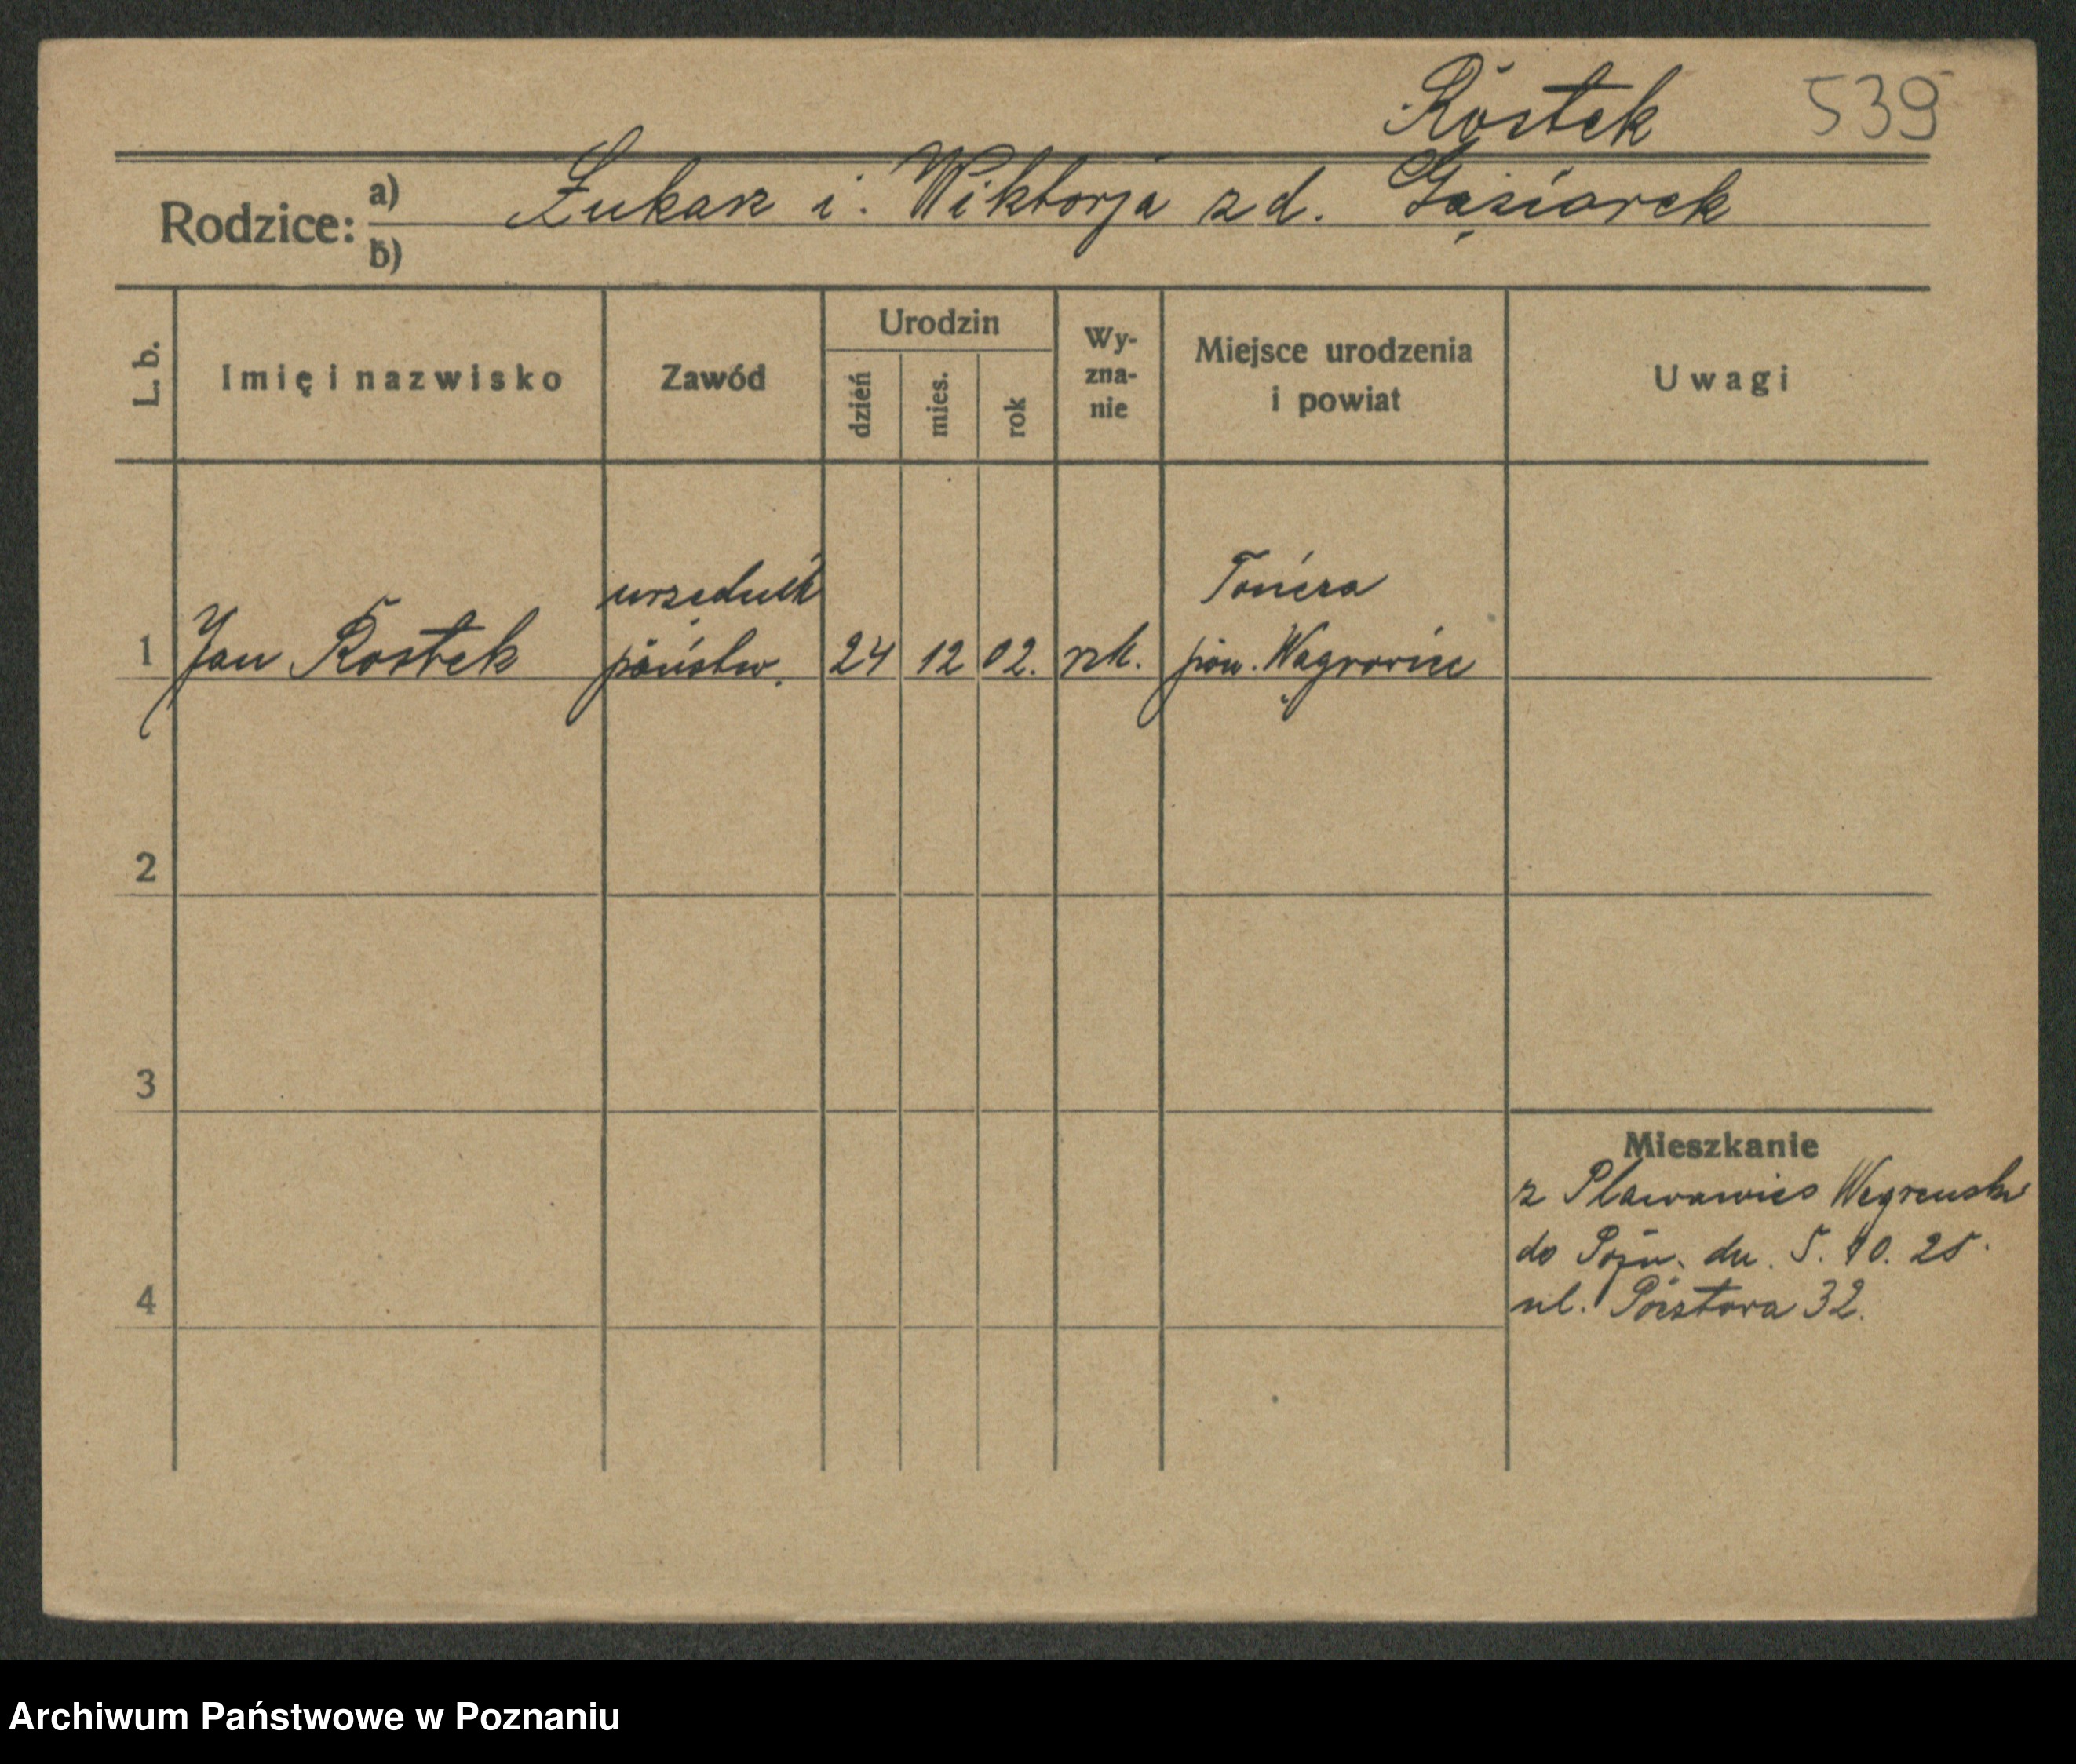 Rostek 539
Rodzice: a) Łukasz i. Wiktorja z d. Gąsiorek
b)
L. b.
Imię i nazwisko
Zawód
Urodzin
dzień
mies.
rok
Wy-
zna-
nie
Miejsce urodzenia
i powiat
Uwagi
1 Jan Rostek
urzędnik
państw.
24 12 02. rk.
pow. Wągrowiec
2
3
4
Mieszkanie
z
do Pozn. dn. 5. 10. 25.
ul. 32.
Archiwum Państwowe w Poznaniu